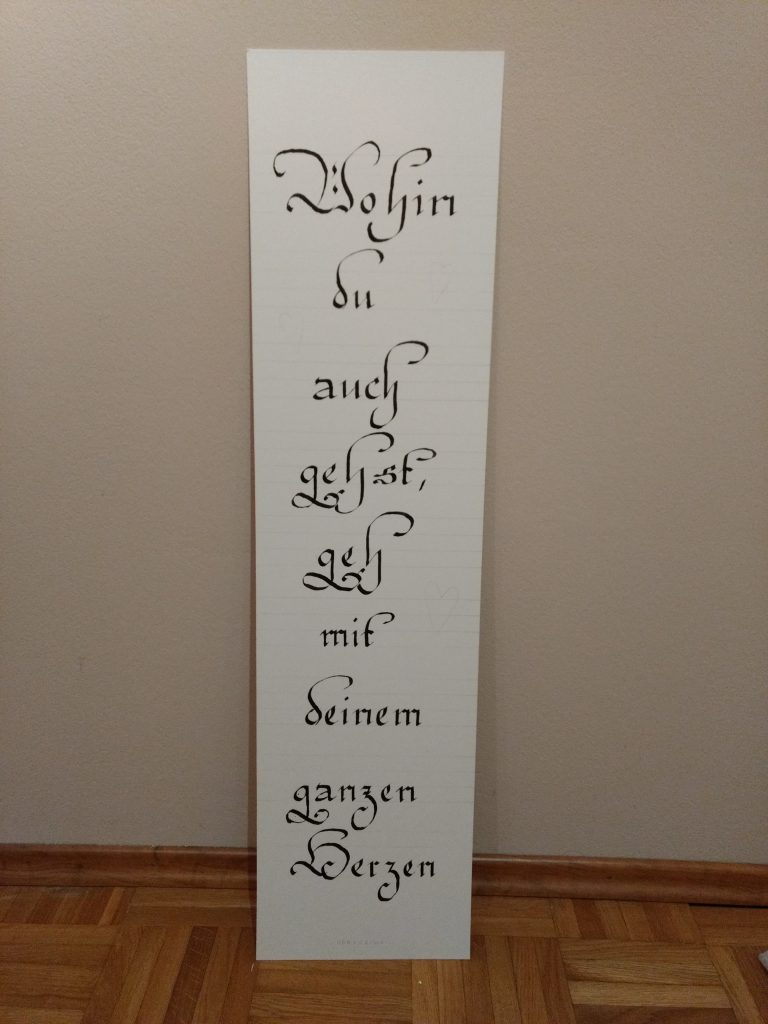 Wohin
du
auch
gehst,
geh
mit
deinem
ganzen
Herzen